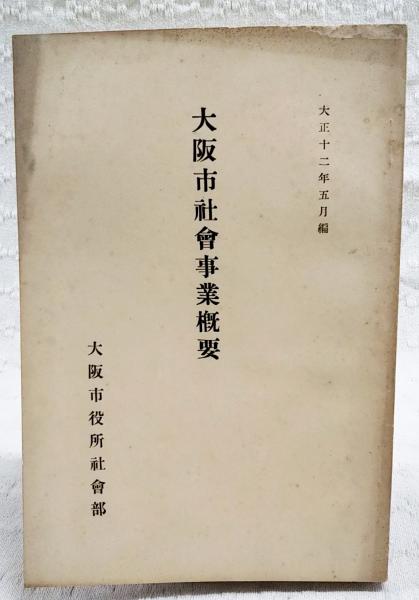 大正十二年五月編
大阪市社會事業槪要
大阪市役所社會部